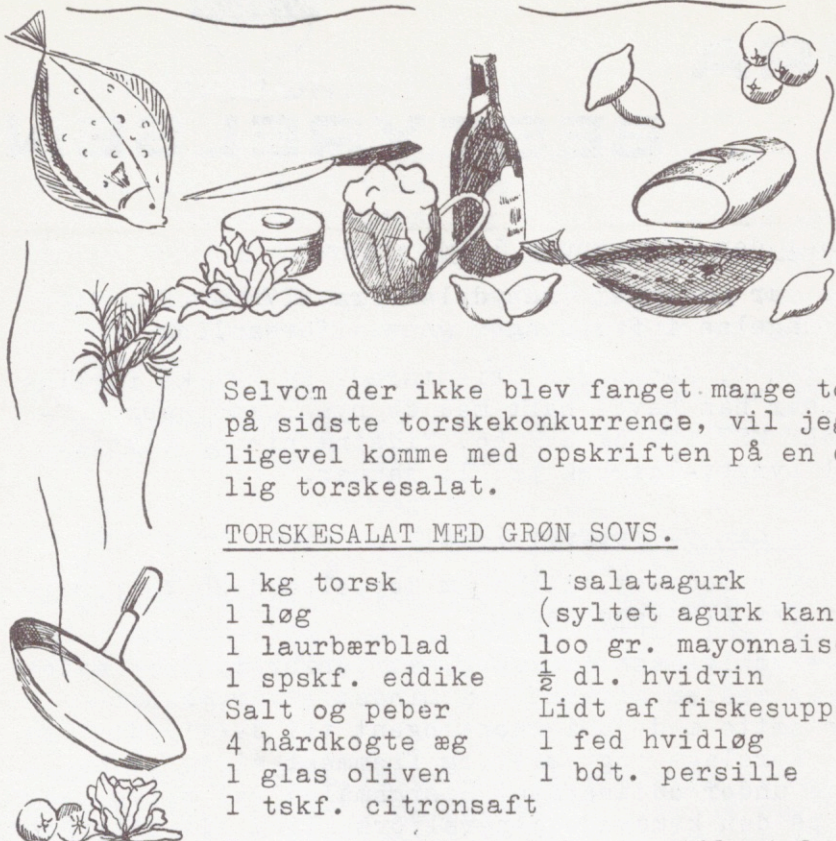 Selvom der ikke blev fanget mange
på sidste torskekonkurrence, vil jeg
ligevel komme med opskriften på en
lig torskesalat.
TORSKESALAT MED GRØN SOVS.
1 kg torsk
1 løg
1 laurbærblad
1 spskf. eddike
Salt og peber
4 hårdkogte æg
1 glas oliven
1 tskf. citronsaft
1 salatagurk
(syltet agurk kan
loo gr. mayonnais
½ dl. hvidvin
Lidt af fiskesupp
1 fed hvidløg
1 bdt. persille